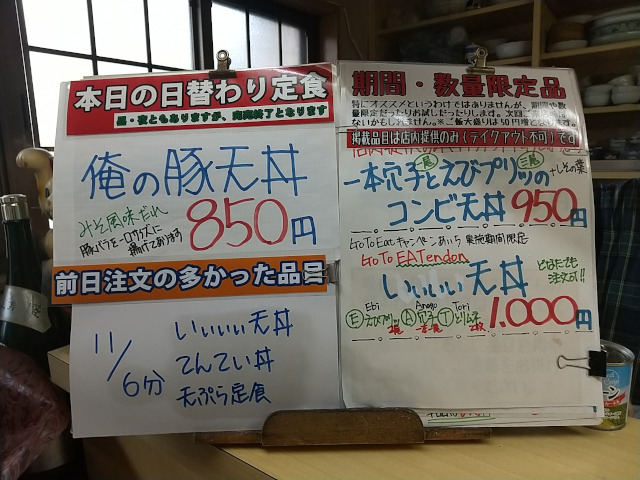 本日の日替わり定食
昼・夜ともありますが、完売終了となります
俺の豚天丼
みそ風味だれ
豚バラを一口サイズに
揚げてあります
850円
前日注文の多かった品目
11/6分
いぃぃぃ天丼
てんてい丼
天ぷら定食
期間・数量限定品
特にオススメというわけではありませんが、期間や数
量限定だったりお試しだったりします。次回
ないかもしれません。※ご飯大盛りは50円増
掲載品目は店内提供のみ(テイクアウト不可)です
一本穴子とえびプリッの
+しその葉
コンビ天丼 950円
GoToEatキャンペーンあいち 実施期間限定
GoTo EATendon
いぃぃぃ天丼
どなたでも
注文可!!
Ebi Anago Tori
E えびプリッ A 穴子 T とりムネ
1.000円